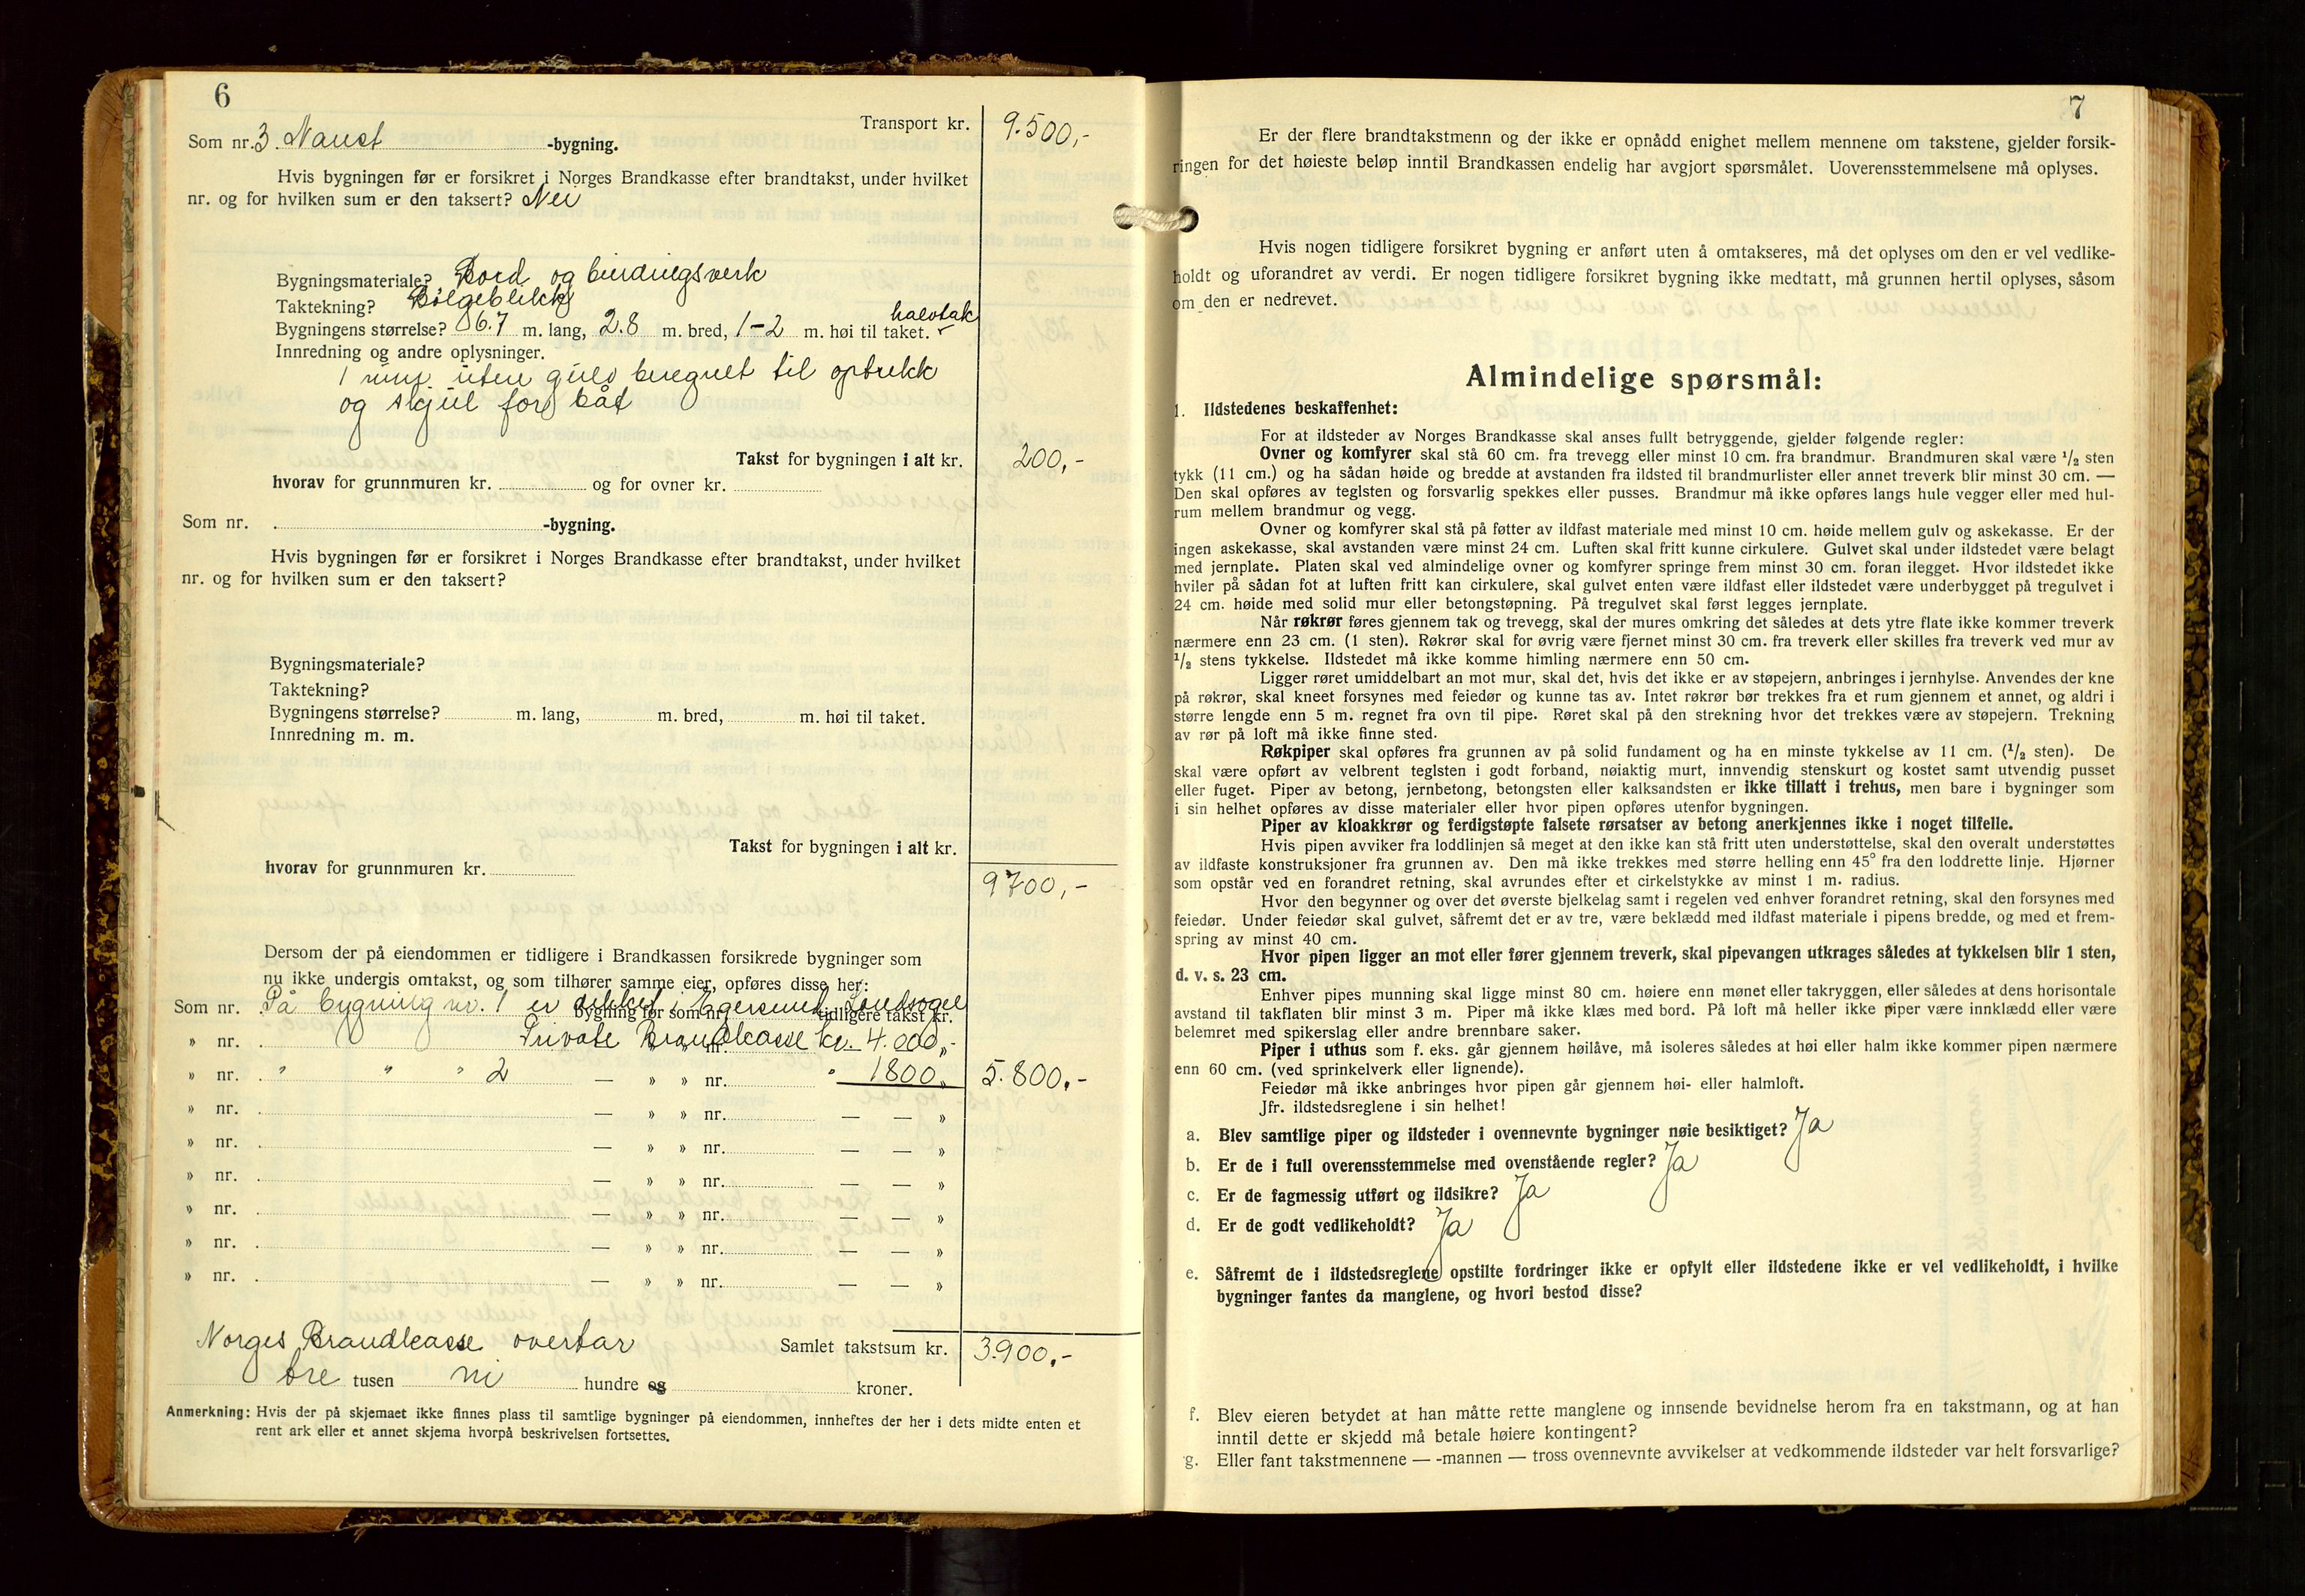 6
Transport kr. 9.500,-
Som nr. 3 Naust -bygning.
Hvis bygningen før er forsikret i Norges Brandkasse efter brandtakst, under hvilket
nr. og for hvilken sum er den taksert? Nei
Bygningsmateriale? Bord og bindingsverk
Taktekning? Bølgeblikk
halvtak
Bygningens størrelse? 6.7 m. lang, 2.8 m. bred, 1-2 m. høi til taket.
Innredning og andre oplysninger.
1 rum uten gulv beregnet til optrekk
og skjul for båt
Takst for bygningen i alt kr. 200,-
hvorav for grunnmuren kr. og for ovner kr.
Som nr. -bygning.
Hvis bygningen før er forsikret i Norges Brandkasse efter brandtakst, under hvilket
nr. og for hvilken sum er den taksert?
Bygningsmateriale?
Taktekning?
Bygningens størrelse? m. lang, m. bred, m. høi til taket.
Innredning m. m.
Takst for bygningen i alt kr.
hvorav for grunnmuren kr.
9700,-
Dersom der på eiendommen er tidligere i Brandkassen forsikrede bygninger som
nu ikke undergis omtakst, og som tilhører samme eier, opføres disse her:
Som nr. På bygning nr. 1 er dekket i Egersund Landsogns
bygning før som nr. tidligere takst kr.
» nr. Private Brandkasse kr. 4.000,-
» nr. " " " 2 — » » nr. " 1800,- 5.800,-
» nr. — » » nr. — — »
» nr. — » » nr. — — »
» nr. — » » nr. — — »
» nr. — » » nr. — — »
» nr. — » » nr. — — »
» nr. — » » nr. — — »
Norges Brandkasse overtar Samlet takstsum kr. 3.900,-
tre tusen ni hundre og kroner.
Anmerkning: Hvis der på skjemaet ikke finnes plass til samtlige bygninger på eiendommen, innheftes der her i dets midte enten et
rent ark eller et annet skjema hvorpå beskrivelsen fortsettes.
7
Er der flere brandtakstmenn og der ikke er opnådd enighet mellem mennene om takstene, gjelder forsik-
ringen for det høieste beløp inntil Brandkassen endelig har avgjort spørsmålet. Uoverensstemmelsene må oplyses.
Hvis nogen tidligere forsikret bygning er anført uten å omtakseres, må det oplyses om den er vel vedlike-
holdt og uforandret av verdi. Er nogen tidligere forsikret bygning ikke medtatt, må grunnen hertil oplyses, såsom
om den er nedrevet.
Almindelige spørsmål:
1. Ildstedenes beskaffenhet:
For at ildsteder av Norges Brandkasse skal anses fullt betryggende, gjelder følgende regler:
Ovner og komfyrer skal stå 60 cm. fra trevegg eller minst 10 cm. fra brandmur. Brandmuren skal være 1/2 sten
tykk (11 cm.) og ha sådan høide og bredde at avstanden fra ildsted til brandmurlister eller annet treverk blir minst 30 cm. —
Den skal opføres av teglsten og forsvarlig spekkes eller pusses. Brandmur må ikke opføres langs hule vegger eller med hul-
rum mellem brandmur og vegg.
Ovner og komfyrer skal stå på føtter av ildfast materiale med minst 10 cm. høide mellem gulv og askekasse. Er der
ingen askekasse, skal avstanden være minst 24 cm. Luften skal fritt kunne cirkulere. Gulvet skal under ildstedet være belagt
med jernplate. Platen skal ved almindelige ovner og komfyrer springe frem minst 30 cm. foran ilegget. Hvor ildstedet ikke
hviler på sådan fot at luften fritt kan cirkulere, skal gulvet enten være ildfast eller ildstedet være underbygget på tregulvet i
24 cm. høide med solid mur eller betongstøpning. På tregulvet skal først legges jernplate.
Når røkrør føres gjennem tak og trevegg, skal der mures omkring det således at dets ytre flate ikke kommer treverk
nærmere enn 23 cm. (1 sten). Røkrør skal for øvrig være fjernet minst 30 cm. fra treverk eller skilles fra treverk ved mur av
1/2 stens tykkelse. Ildstedet må ikke komme himling nærmere enn 50 cm.
Ligger røret umiddelbart an mot mur, skal det, hvis det ikke er av støpejern, anbringes i jernhylse. Anvendes der kne
på røkrør, skal kneet forsynes med feiedør og kunne tas av. Intet røkrør bør trekkes fra et rum gjennem et annet, og aldri i
større lengde enn 5 m. regnet fra ovn til pipe. Røret skal på den strekning hvor det trekkes være av støpejern. Trekning
av rør på loft må ikke finne sted.
Røkpiper skal opføres fra grunnen av på solid fundament og ha en minste tykkelse av 11 cm. (1/2 sten). De
skal være opført av velbrent teglsten i godt forband, nøiaktig murt, innvendig stenskurt og kostet samt utvendig pusset
eller fuget. Piper av betong, jernbetong, betongsten eller kalksandsten er ikke tillatt i trehus, men bare i bygninger som
i sin helhet opføres av disse materialer eller hvor pipen opføres utenfor bygningen.
Piper av kloakkrør og ferdigstøpte falsete rørsatser av betong anerkjennes ikke i noget tilfelle.
Hvis pipen avviker fra loddlinjen så meget at den ikke kan stå fritt uten understøttelse, skal den overalt understøttes
av ildfaste konstruksjoner fra grunnen av. Den må ikke trekkes med større helling enn 45° fra den loddrette linje. Hjørner
som opstår ved en forandret retning, skal avrundes efter et cirkelstykke av minst 1 m. radius.
Hvor den begynner og over det øverste bjelkelag samt i regelen ved enhver forandret retning, skal den forsynes med
feiedør. Under feiedør skal gulvet, såfremt det er av tre, være beklædd med ildfast materiale i pipens bredde, og med et frem-
spring av minst 40 cm.
Hvor pipen ligger an mot eller fører gjennem treverk, skal pipevangen utkrages således at tykkelsen blir 1 sten,
d. v. s. 23 cm.
Enhver pipes munning skal ligge minst 80 cm. høiere enn mønet eller takryggen, eller således at dens horisontale
avstand til takflaten blir minst 3 m. Piper må ikke klæs med bord. På loft må heller ikke piper være innklædd eller være
belemret med spikerslag eller andre brennbare saker.
Piper i uthus som f. eks. går gjennem høilåve, må isoleres således at høi eller halm ikke kommer pipen nærmere
enn 60 cm. (ved sprinkelverk eller lignende).
Feiedør må ikke anbringes hvor pipen går gjennem høi- eller halmloft.
Jfr. ildstedsreglene i sin helhet!
a. Blev samtlige piper og ildsteder i ovennevnte bygninger nøie besiktiget? Ja
b. Er de i full overensstemmelse med ovenstående regler? Ja
c. Er de fagmessig utført og ildsikre? Ja
d. Er de godt vedlikeholdt? Ja
e. Såfremt de i ildstedsreglene opstilte fordringer ikke er opfylt eller ildstedene ikke er vel vedlikeholdt, i hvilke
bygninger fantes da manglene, og hvori bestod disse?
f. Blev eieren betydet at han måtte rette manglene og innsende bevidnelse herom fra en takstmann, og at han
inntil dette er skjedd må betale høiere kontingent?
g. Eller fant takstmennene — -mannen — tross ovennevnte avvikelser at vedkommende ildsteder var helt forsvarlige?